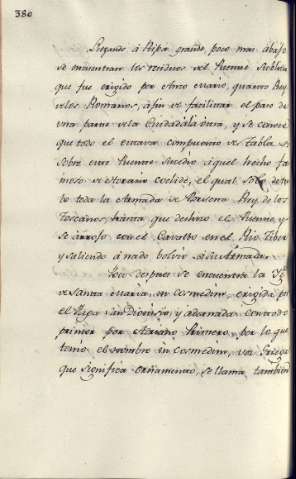 380
Llegando á Ripa grande, poco mas abajo
se encuentran los residuos del Puente Sublicio
que fue erigido por Anco Marcio, quarto Rey
de los Romanos, á fin de facilitar el paso de
una parte de la Ciudad á la otra, y se conoce
que todo el estava compuesto de Tabla
sobre este Puente sucedio aquel hecho fa
moso de Horacio Coclide, el qual solo detu
bo toda la Armada de Porsena Rey de los
Toscanos, hasta que deshizo el Puente, y
se arrojo con el Cavallo en el Rio Tiber
y saliendo á nado bolvio á su Armada.
Poco despues se encuentra la Yg.ª
de Santa Maria in Cosmedin, erigida por
el Papa San Dionisio, y adornada con
primor por Adriano Primero, por lo que
tomó el nombre in Cosmedin, voz Griega
que significa Ornamento, se llama tambien